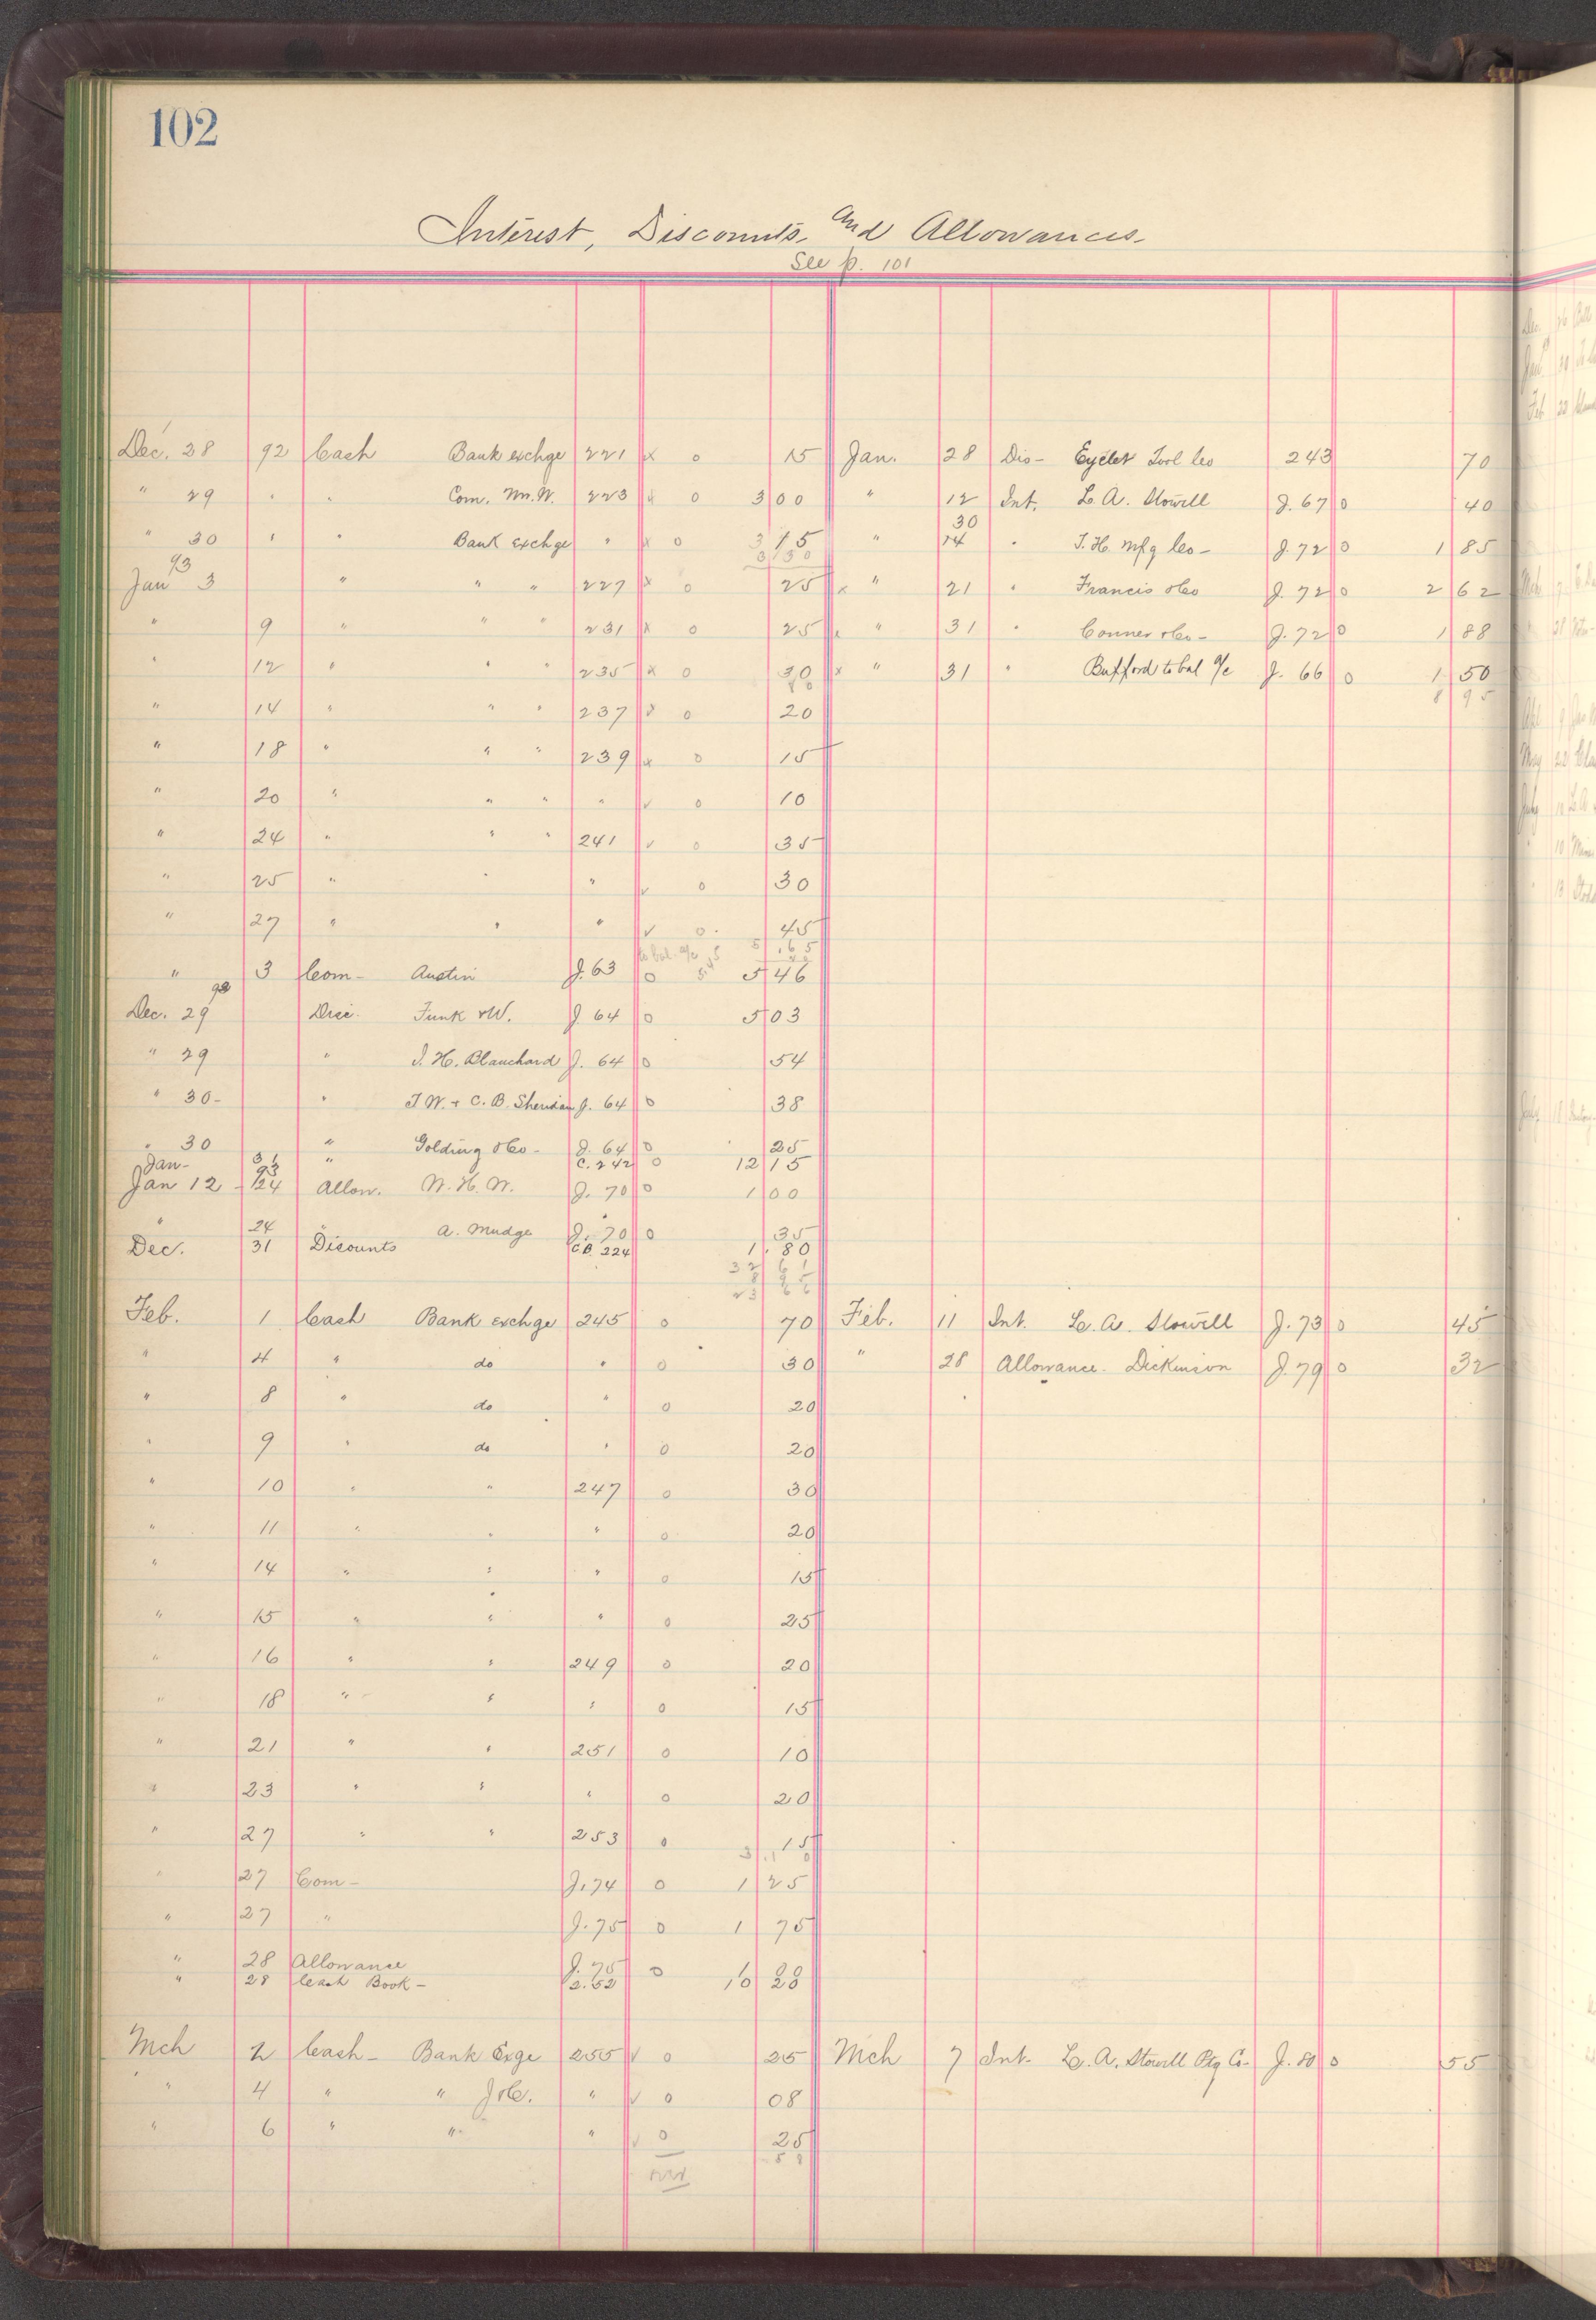 102
Interest, Discounts, and Allowances
See p. 101
Dec. 28 92 Cash Bank exchge 221 x o 15 Jan. 28 Dis- Eyelet Tool Co 243 70
" 29 " " Com. Wm. W. 223 x o 3 00 " 12 Int. L. A. Stowell J. 67 o 40
30
" 30 " " Bank exchge " x o 3 15 " 14 " J. H. Mfg Co- J. 72 o 1 85
3 30
93
Jan 3 " " " 227 x o 25 x " 21 " Francis &Co J. 72 o 2 62
" 9 " " " 231 x o 25 x " 31 " Conner &Co- J. 72 o 1 88
" 12 " " " 235 x o 30 x " 31 " Bufford to bal a/c J. 66 o 1 50
8 95
" 14 " " " 237 x o 20
" 18 " " " 239 x o 15
" 20 " " " " v o 10
" 24 " " " 241 v o 35
" 25 " " " v o 30
" 27 " " " v o 45
to bal a/c 5 65
" 3 Com- Austin J. 63 o 5 46
92
Dec. 29 Disc. Funk &W. J. 64 o 5 03
" 29 " J. H. Blanchard J. 64 o 54
" 30- " T W. + C. B. Sheridan J. 64 o 38
" 30 " Golding &Co- J. 64 o 25
Jan- 31 " C. 242 o 12 15
93
Jan 12 24 Allow. W. H. W. J. 70 o 1 00
" 24 " A. Mudge J. 70 o 35
Dec. 31 Discounts C.B. 224 1. 80
32 61
8 95
23 66
Feb. 1 Cash Bank exchge 245 o 70 Feb. 11 Int. L. A. Stowell J. 73 o 45
" 4 " do " o 30 " 28 Allowance. Dickinson J. 79 o 32
" 8 " do " o 20
" 9 " do " o 20
" 10 " " 247 o 30
" 11 " " " o 20
" 14 " " " o 15
" 15 " " " o 25
" 16 " " 249 o 20
" 18 " " " o 15
" 21 " " 251 o 10
" 23 " " " o 20
" 27 " " 253 o 15
3 10
" 27 Com- J. 74 o 1 25
" 27 " J. 75 o 1 75
" 28 Allowance J. 75 o
" 28 Cash Book-
Mch 2 Cash- Bank Exge 255 v o 25 Mch 7 Int. L. A. Stowell Ptg Co- J. 80 o 55
" 4 " " " v o 08
" 6 " " " v o 25
58